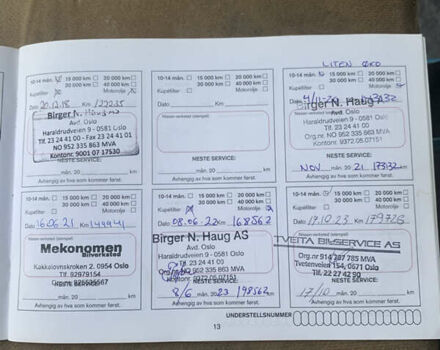 LITEN ØKO
10-14 mån. 15 000 km 30 000 km
20 000 km 40 000 km
Kupéfilter Motorolje
Dato 20.12.18 Km
Birger N. Haug AS
Avd. Oslo
Haraldrudveien 9 - 0581 Oslo
Tlf. 23 24 41 00 - Fax 23 24 41 01
NO 952 335 863 MVA
Kontonr. 9001 07 17530
Avhengig av hva som kommer først.
10-14 mån. 15 000 km 30 000 km
20 000 km 40 000 km
Kupéfilter Motorolje
Dato Km
Nissan-verksted (stempel)
NESTE SERVICE:
mån. 20 / km
Avhengig av hva som kommer først.
10-14 mån. 15 000 km 30 000 km
20 000 km 40 000 km
Kupéfilter Motorolje
Dato
Birger N. Haug
Avd. Oslo
Haraldrudveien 9 - 0581 Oslo
Tlf. 23 24 41 00
Org.nr. NO 952 335 863 MVA
Kontonr. 9372.05.07171
NESTE SERVICE:
NOV mån. 20 21 / km
Avhengig av hva som kommer først.
10-14 mån. 15 000 km 30 000 km
20 000 km 40 000 km
Kupéfilter Motorolje
Dato 16.06.21 Km 149941
Nissan-verksted (stempel)
Mekonomen
Bilverksted
Kakkelovnskroken 2, 0954 Oslo
Tlf: 92979154
mån. 20 / km
Avhengig av hva som kommer først.
10-14 mån. 15 000 km 30 000 km
20 000 km 40 000 km
Kupéfilter Motorolje
Dato 08.06.22 Km 168562
Birger N. Haug AS
Avd. Oslo
Haraldrudveien 9 - 0581 Oslo
Tlf. 23 24 41 00
NO 952 335 863 MVA
Kontonr. 9372.05.07151
8/6 mån. 20 23 / 198562 km
Avhengig av hva som kommer først.
10-14 mån. 15 000 km 30 000 km
20 000 km 40 000 km
Kupéfilter Motorolje
Dato 17.10.23 Km 179726
Nissan-verksted (stempel)
TVEITA BILSERVICE AS
Org.nr 914 787 785 MVA
Tvetenveien 154, 0671 Oslo
Tlf. 22 27 42 90
17/10 mån. 20 / km
Avhengig av hva som kommer først.
UNDERSTELLSNUMMER
13